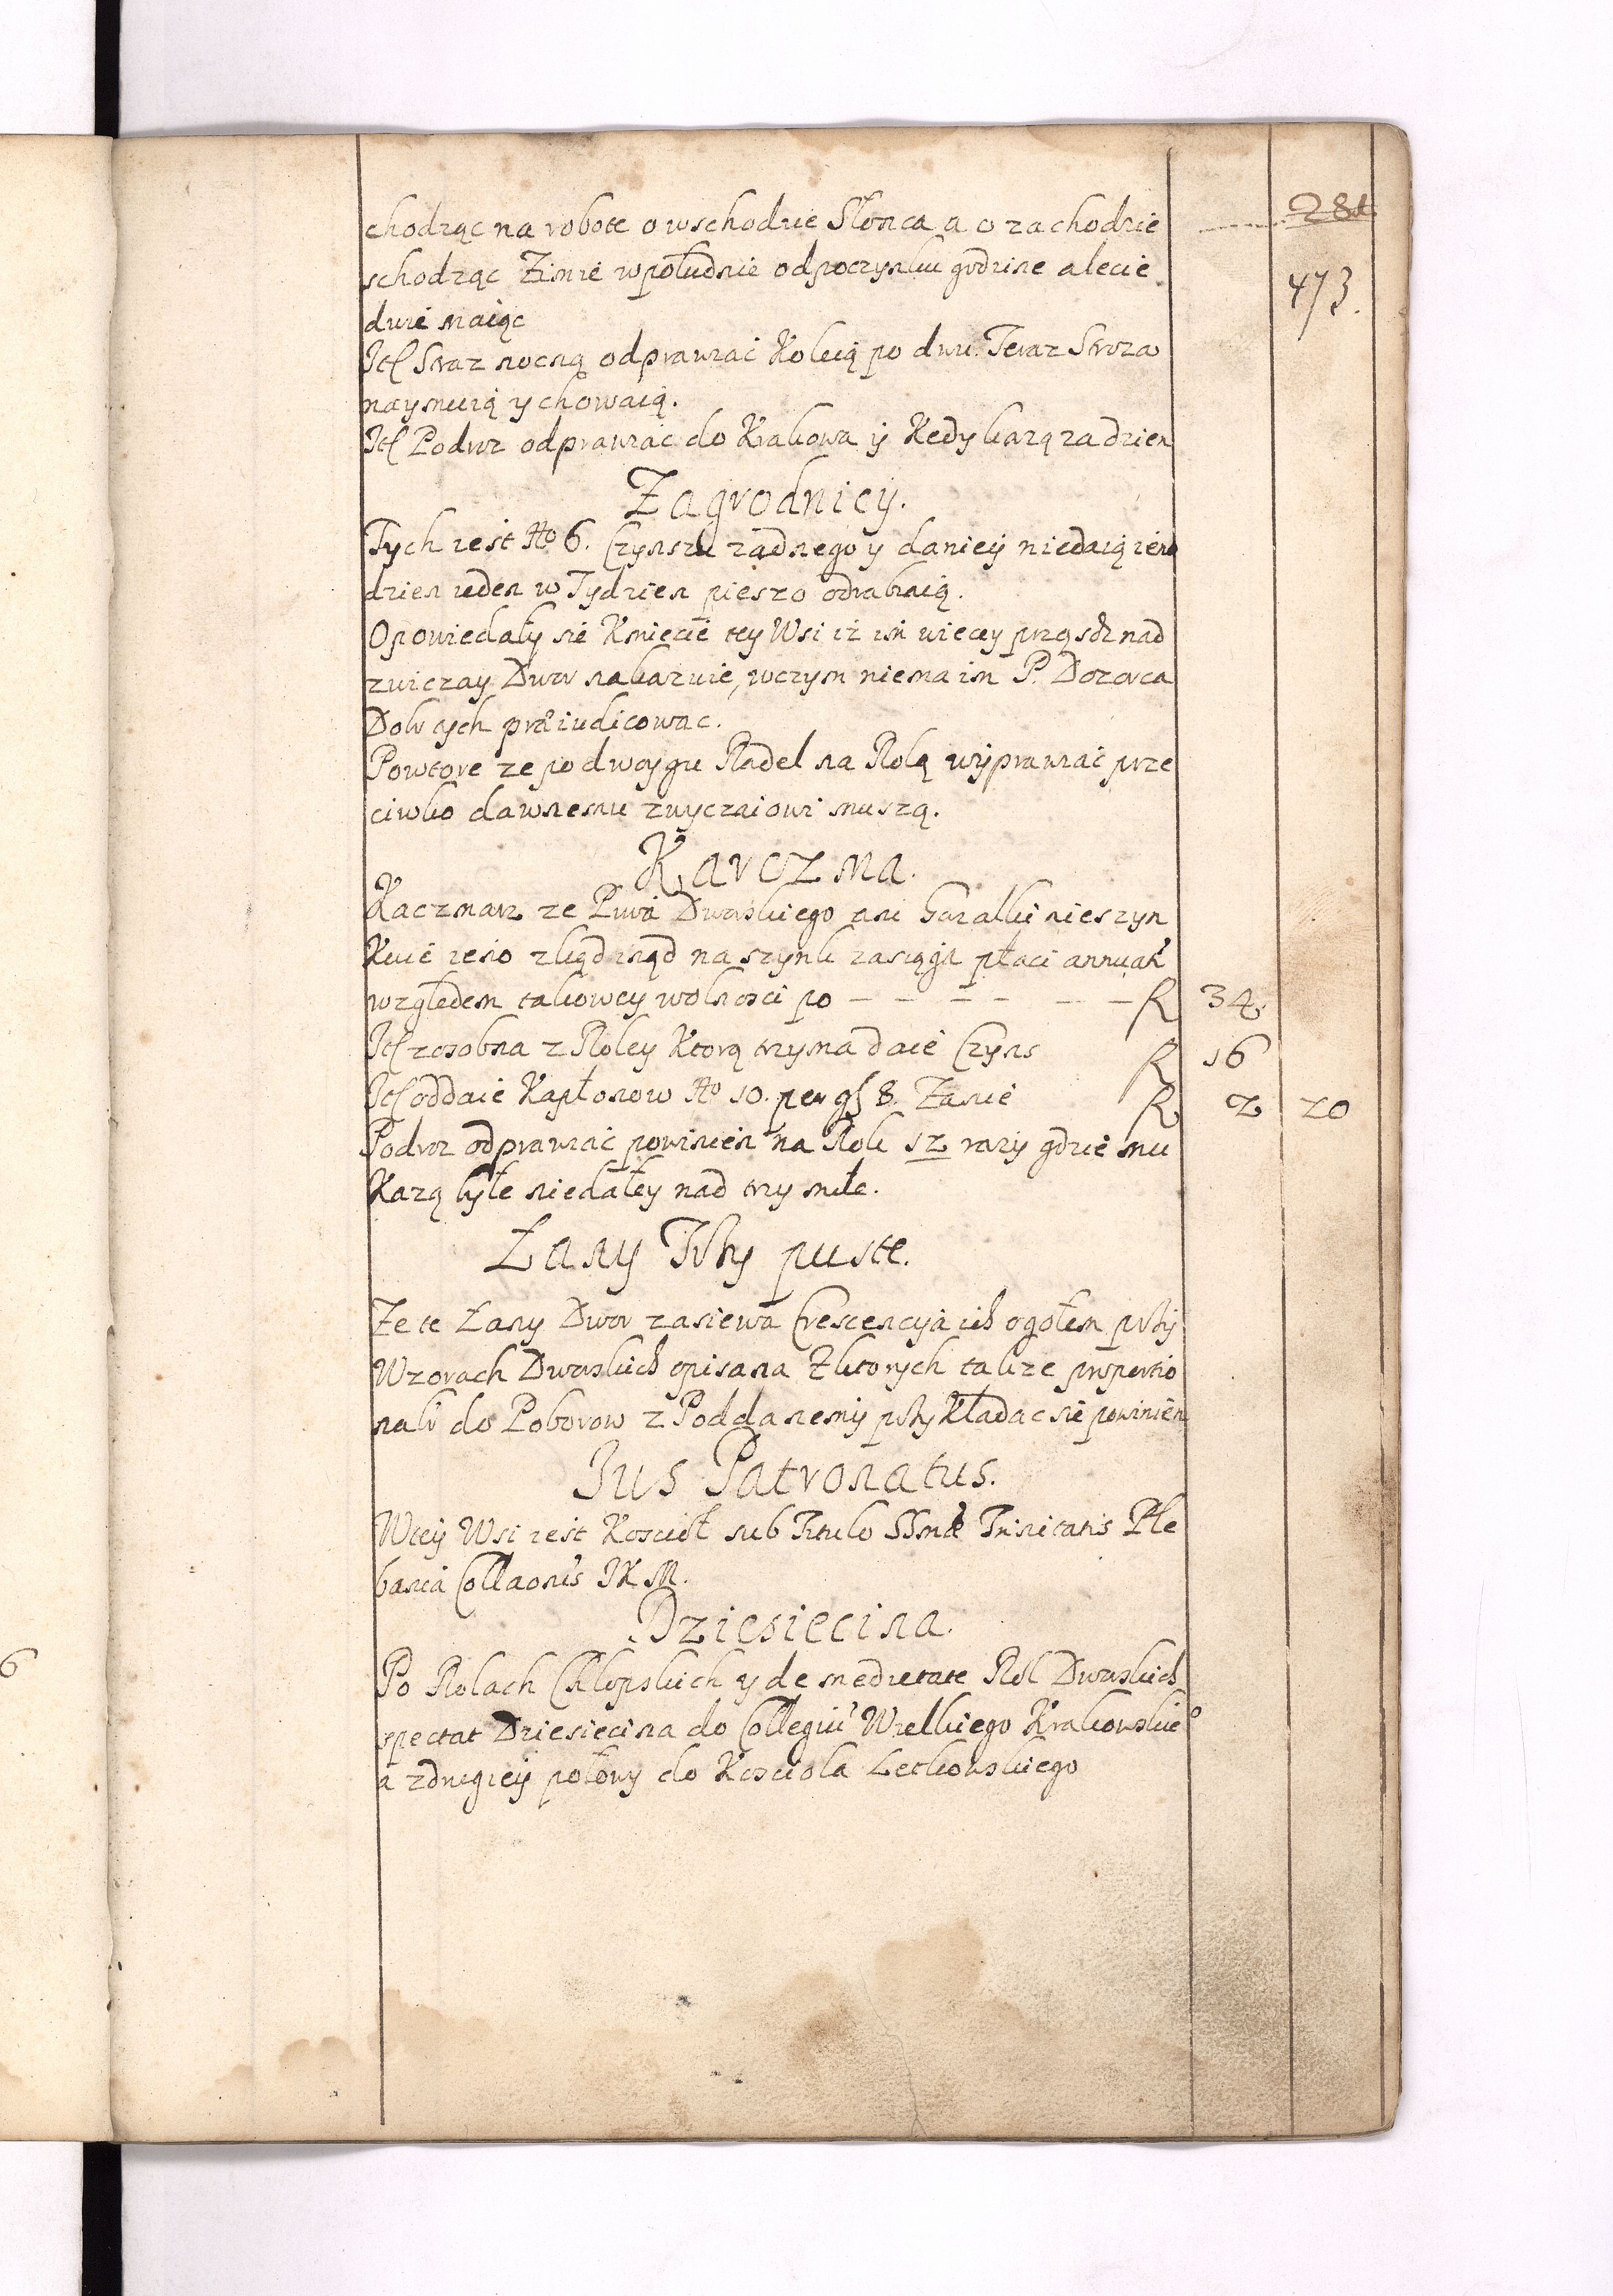 281
473.
chodząc na robote o wschodzie Słonca a o zachodzie
schodząc Zimie wpołudnie odpoczynku godzine a lecie
dwie maiąc
Itl Straz nocną odprawiac Koleią po dwu. Teraz Stroza
naymuią y chowaią.
Itl Podwz odprawiac do Krakowa ÿ Kedy karzą za dzien
Zagrodnicÿ.
Tych iest No 6. Czynszu zadnego y daniey niedaią ieno
dzien ieden w Tydzien pieszo odrabiaią.
Opowiedały sie Kmiecie tey Wsi iz im wiecey nad
zwiczay Dwor nakazuie, wczym niema im P. Dozorca
Dobr tych præiudicowac.
Powtore ze po dwoygu Radel na Rolą wÿprawiac prze
ciwko dawnemu zwyczaiowi muszą.
Karczma.
Kaczmarz ze Piwa Dworskiego ani Gorałki nieszyn
Kuie ieno zkąd inąd na szynk zaciąga płaci annuatῖ
względem takowey wolnosci po – – – – – – R 34
Itl zosobna z Roley Ktorą trzyma daie Czyns R 16
Itl oddaie Kapłonow No 10. per gs 8. Zanie R 2 20
Podwz odprawiac powinien na Rok 12 razy gdzie mu
Karzą byłe niedałey nad trzy mile.
Łany Trzy puste.
Ze te Łany Dwor zasiewa Crescencyia ich ogołem przÿ
Wzorach Dworskich opisana Z ktorych takze proportio
nalr do Poborow z Poddanemÿ przykładac sie powinien
Jus Patronatus.
Wteÿ Wsi iest Koscioł sub Titulo SSmæ Trinitatis Ple
bania Collaonis JKM.
Dziesiecina.
Po Rolach Chłopskich y de medietate Rol Dworskich
spectat Dziesiecina do Collegiu Wielkiego Krakowskieo
a zdrugieÿ połowy do Kosciola Letkowskiego